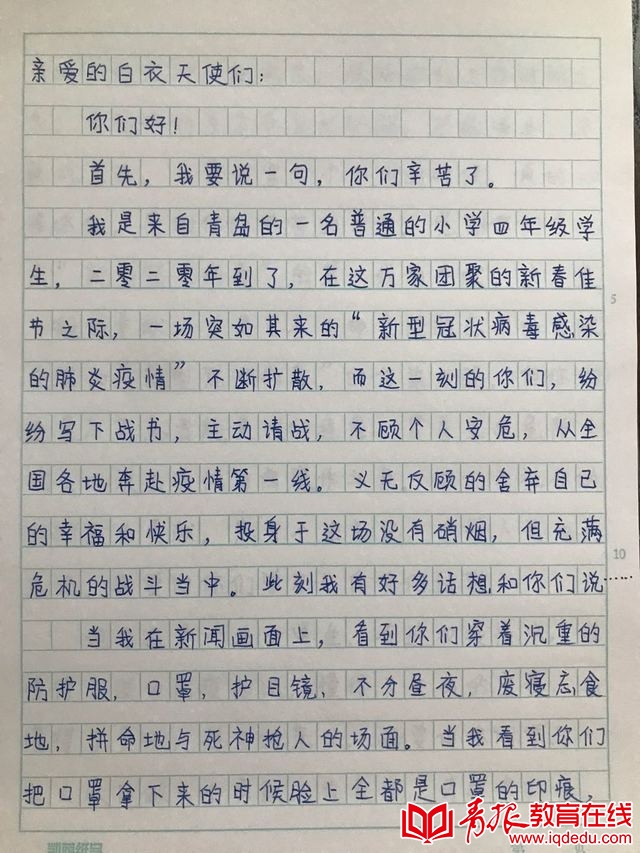 亲爱的白衣天使们：
你们好！
首先，我要说一句，你们辛苦了。
我是来自青岛的一名普通的小学四年级学
生，二零二零年到了，在这万家团聚的新春佳
节之际，一场突如其来的“新型冠状病毒感染
的肺炎疫情”不断扩散，而这一刻的你们，纷
纷写下战书，主动请战，不顾个人安危，从全
国各地奔赴疫情第一线。义无反顾的舍弃自己
的幸福和快乐，投身于这场没有硝烟，但充满
危机的战斗当中。此刻我有好多话想和你们说……
当我在新闻画面上，看到你们穿着沉重的
防护服，口罩，护目镜，不分昼夜，废寝忘食
地，拼命地与死神抢人的场面。当我看到你们
把口罩拿下来的时候脸上全都是口罩的印痕，
5
10
青报教育在线
www.iqdedu.com